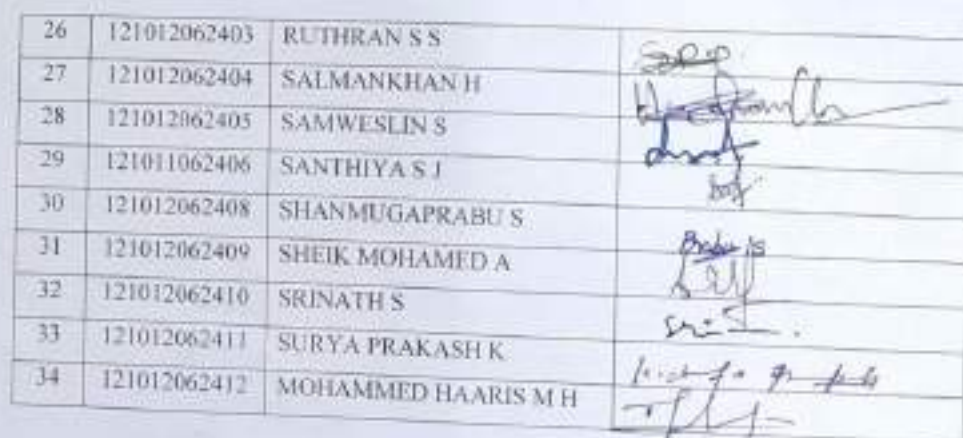 26 121012062403 RUTHRAN S S
27 121012062404 SALMANKHAN H
28 121012062405 SAMWESLIN S
29 121011062406 SANTHIYA S J
30 121012062408 SHANMUGAPRABU S
31 121012062409 SHEIK MOHAMED A
32 121012062410 SRINATH S
33 121012062411 SURYA PRAKASH K
34 121012062412 MOHAMMED HAARIS M H